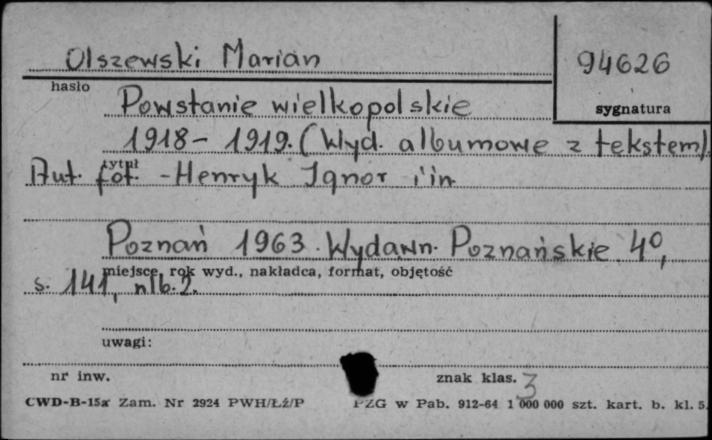 Olszewski Marian
94626
hasło
sygnatura
Powstanie wielkopolskie
1918 - 1919. (Wyd. albumowe z tekstem)
tytuł
Aut. fot. - Henryk Ignor i in.
Poznań 1963. Wydawn. Poznańskie. 4°,
miejsce, rok wyd., nakładca, format, objętość
s. 141, nlb. 2.
uwagi:
nr inw.
znak klas. 3
CWD-B-15a Zam. Nr 2924 PWH/Łź/P PZG w Pab. 912-64 1 000 000 szt. kart. b. kl. 5.